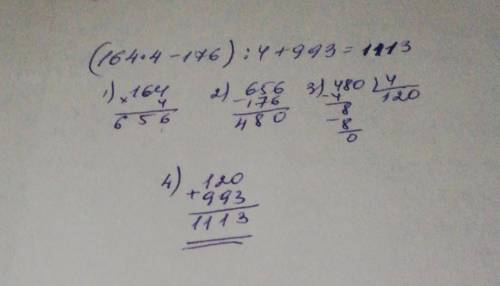 (164·4-176):4+993=1113
1) 164 2) 656 3) 480 | 4
× 4 - 176 - 4 120
656 480 8
- 8
0
4) 120
+ 993
1113